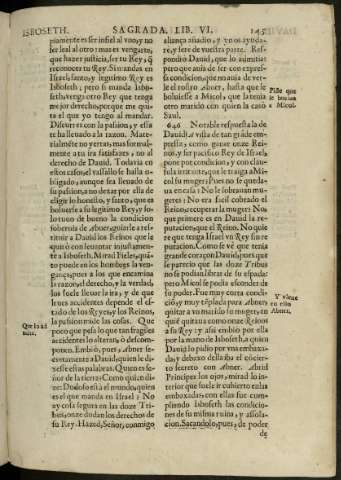 ISBOSETH. SAGRADA. LIB. VI. 145
piamente es ser infiel al vno, y no
ser leal al otro: mas es vengarte,
que hazer justicia, ser tu Rey, q̃
reconoces tu Rey. Si mandas en
Israel, santo, y legitimo Rey es
Isboseth; pero si manda Isbo-
seth, venga otro Rey que tenga
mejor derecho, porque me qui-
ta el que yo tengo al mandar.
Discurres con la passion, y essa
te ha lleuado a la razon. Mate-
rialmẽte no yertas, mas formal-
mente a tu ira satisfazes, no al
derecho de Dauid. Todavia en
estos casos, el vassallo se halla o-
bligado, aunque sea lleuado de
su passion, a no dexar por ella de
eligir lo honesto, y santo, que es
boluerse a su legitimo Rey, y so-
bornos de Abner, guiarle a res-
tituir a Dauid los Reinos que le
quitò con leuantar injustamen-
te a Isboseth. Mirad Fieles, quã-
to puede en los hombres la ven-
gança, pues a los que encamina
la razon, el derecho, y la verdad,
los suele lleuar la ira, y de que
leues accidentes depende el es-
tado de los Reyes, y los Reinos,
Que la ha
poco que pesa lo que tan fragiles
accidentes lo alteran, ò descom-
ponen. Embiò, pues, Abner se-
cretamente a Dauid, quien le di-
xesse estas palabras. Quien es se-
ñor de la tierra? Como quien di-
ze: Dudoso està el mundo, quien
es el que manda en Israel; No
ay cosa segura en las doze Tri-
bus, onze dudan los derechos de
su Rey. Hazed, Señor, conmigo
aliança añadio, y yo os ayuda-
rè, y serè de vuestra parte. Res-
pondiò Dauid, que lo admitia:
pero que auia de ser con expres-
sa condicion, que no auia de ver-
le el rostro Abner, hasta que le
boluiesse a Micol, que la tenia
otro marido con quien la casò
Saul.
Pide que
a Micol.
646 Notable respuesta la de
Dauid. A vista de tan grãde em-
pressa, como ganar onze Rei-
nos, y ser pacifico Rey de Israel,
pone por condicion, y con clau-
sula irritante, que le traiga a Mi-
col su muger? Pues no se queda-
ua en casa? No le sobrauan mu-
geres? No era facil cobrado el
Reino, recuperar la muger? No:
que primero es en Dauid la re-
putacion, que el Reino. No quie-
re que tenga Israel vn Rey sin re-
putacion. Como se vè que tenia
grande coraçon Dauid, pues que
le parecio que las doze Tribus
no se podian librar de su espada:
pero Micol se podia esconder de
su poder. Fue muy corta condi-
ció, y muy tẽplada para Abner:
quitar a vn marido su muger, en
Y viene
en ello
Abner.
quiẽ quitaua con onze Reinos
a su Rey: y assi embio por ella
por la mano de Isboseth, a quien
Dauid la pidio por vna embaxa-
da, y debaxo della iba el cõcier-
to secreto con Abner. Abrid
Principes los ojos, mirad lo in-
terior que suele ir cubierto en las
embaxadas, con ellas fue cum-
pliendo Isboseth las condicio-
nes de su misma ruina, y assola-
cion. Sacandolo, pues, de poder
de